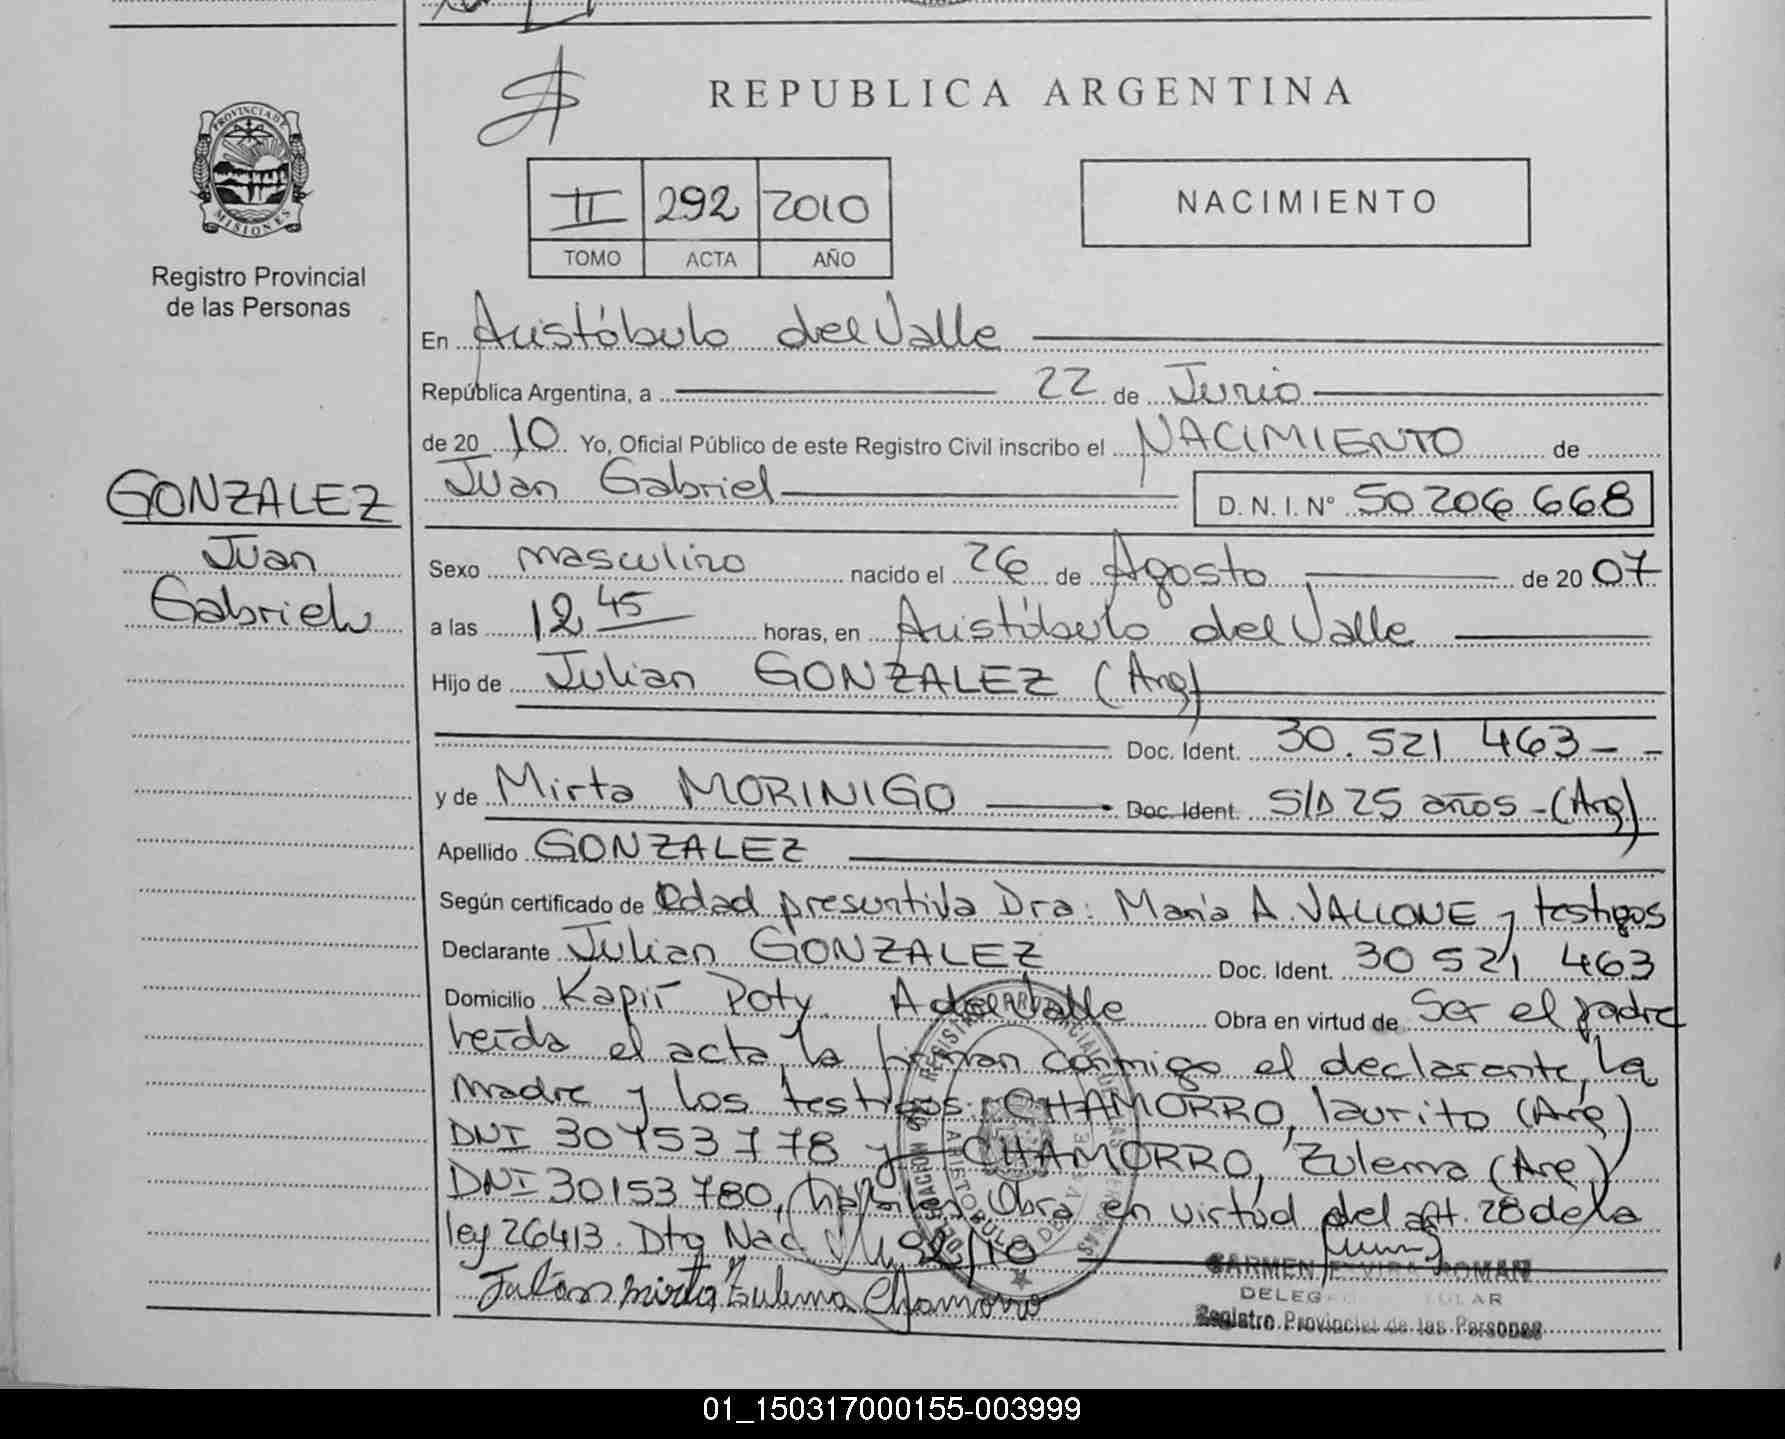 REPUBLICA ARGENTINA
PROVINCIA DE
MISIONES
Registro Provincial
de las Personas
II 292 2010
TOMO ACTA AÑO
NACIMIENTO
En Aristóbulo del Valle
República Argentina, a 22 de Junio
de 20 10 Yo, Oficial Público de este Registro Civil inscribo el NACIMIENTO de
GONZALEZ
Juan
Gabriel
Juan Gabriel D. N. I. N° 50 206 668
Sexo masculino nacido el 26 de Agosto de 20 07
a las 12 45 horas, en Aristóbulo del Valle
Hijo de Julian GONZALEZ (Arg)
Doc. Ident. 30.521 463
y de Mirta MORINIGO Doc. Ident. S/D 25 años - (Arg)
Apellido GONZALEZ
Según certificado de Edad presuntiva Dra: Maria A. VALLONE y testigos
Declarante Julian GONZALEZ Doc. Ident. 30 521 463
Domicilio Kapií Poty. A del Valle Obra en virtud de Ser el padre
leída el acta la firman conmigo el declarante, la
madre y los testigos: CHAMORRO, laurito (Arg)
DNI 30153778 y CHAMORRO, Zulema (Arg)
DNI 30153780, Obra en virtud del art. 28 de la
ley 26413. Dto Nac 92/10
Julian mirta Zulema Chamorro
CARMEN ELVIRA ROMAN
DELEGADA TITULAR
Registro Provincial de las Personas
01_150317000155-003999